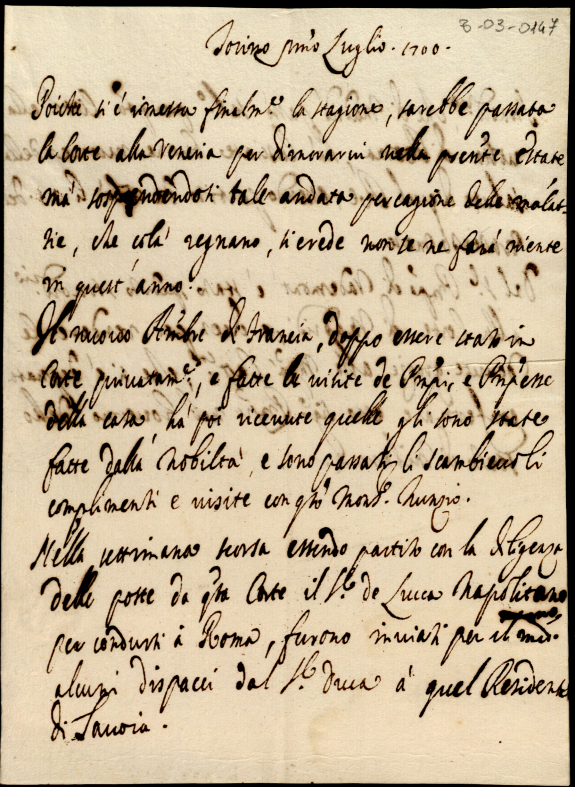 3-03-0147
Torino pmo Luglio. 1700.
Poiche si é rimessa finalmte. la stagione, sarebbe passata
la Corte alla Veneria per dimorarvi nella psente estate
mà sospendendosi tale andata per cagione delle malat-
tie, che colà regnano, si crede non se ne farà niente
in quest'anno.
Il nuovo Ambre di Francia, doppo essere stato in
Corte privatamte., e fatte le visite de Prnpi, e Prnpesse
della casa, hà poi ricevute quelle gli sono state
fatte dalla Nobiltà, e sono passati li scambievoli
complimenti e visite con qto Monsr. Nunzio.
Nella settimana scorsa essendo partito con la diligenza
delle poste da qta Corte il Sr. de Lucca Napolitano
per condursi à Roma, furono inviati per il medo.
alcuni dispacci dal Sr. Duca à quel Residente
di Savoia.